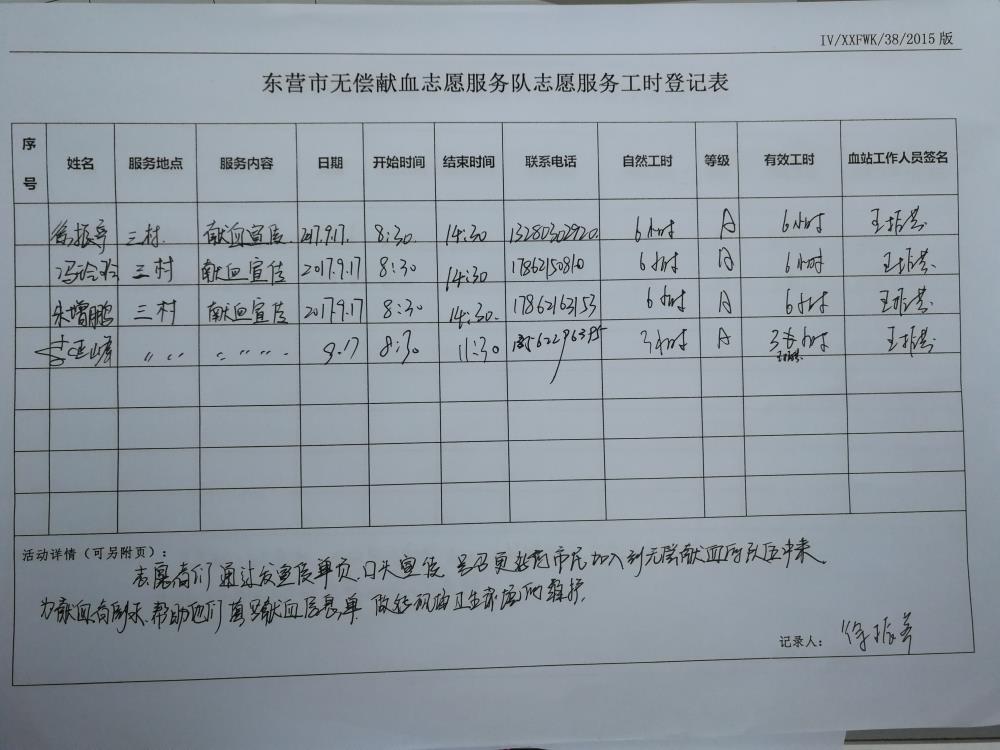 IV/XXFWK/38/2015 版
东营市无偿献血志愿服务队志愿服务工时登记表
序号 姓名 服务地点 服务内容 日期 开始时间 结束时间 联系电话 自然工时 等级 有效工时 血站工作人员签名
三村. 献血宣传. 2017.9.17. 8:30. 14:30 13280302920. 6小时 A 6小时
三村 献血宣传 2017.9.17 8:30 14:30 17862150810 6小时 A 6小时
朱增鹏 三村 献血宣传 2017.9.17 8:30 14:30. 17862163153 6小时 A 6小时
9.17 8:30 11:30 3小时 A 3小时
活动详情（可另附页）：
志愿者们通过发宣传单页、口头宣传 号召更多的市民加入到无偿献血的队伍中来
为献血者倒水、帮助他们填写献血信息单
记录人：